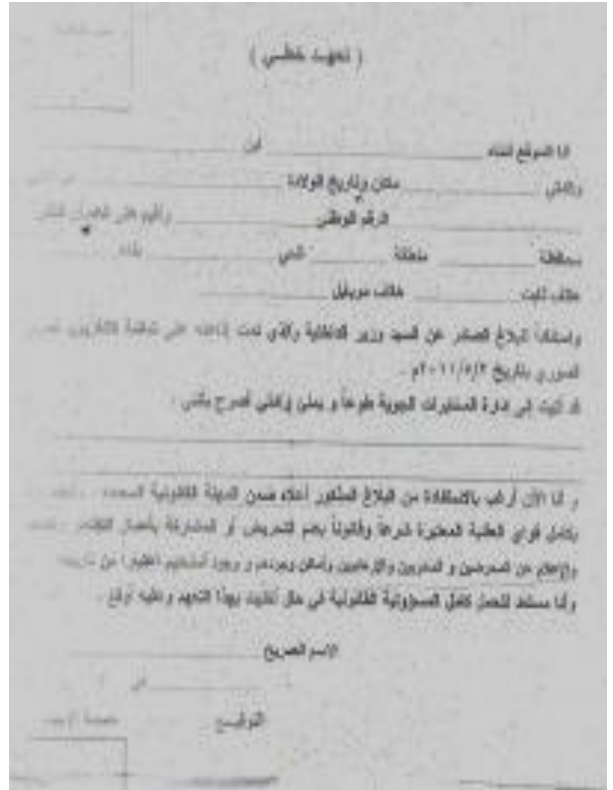 ( تعهد خطي )
أنا الموقع أدناه ابن
والدتي مكان وتاريخ الولادة
الرقم الوطني وأقيم على العنوان التالي
بمحافظة منطقة الحي بناء
هاتف ثابت هاتف موبايل
واستناداً للبلاغ الصادر عن السيد وزير الداخلية والذي تمت إذاعته على شاشة التلفزيون
السوري بتاريخ ٢٠١١/٥/٢م .
قد أتيت إلى إدارة المخابرات الجوية طوعاً و بملئ إرادتي أصرح بأنني :
و أنا الآن أرغب بالاستفادة من البلاغ المذكور أعلاه ضمن المهلة القانونية المحددة
بكامل قواي العقلية المعتبرة شرعاً وقانوناً بعدم التحريض أو المشاركة بأعمال
والإعلام عن المحرضين و المخربين والإرهابيين وأماكن وجودهم و وجود أسلحتهم اعتباراً من تاريخه
وأنا مستعد لتحمل كامل المسؤولية القانونية في حال أخليت بهذا التعهد وعليه أوقع .
الاسم الصريح
في
التوقيع